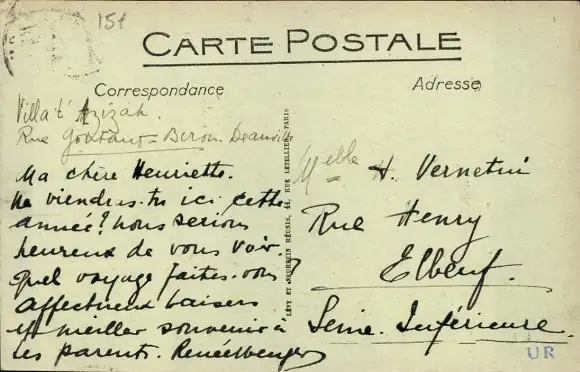 15t
CARTE POSTALE
Correspondance
Adresse
Villa t' Azizah.
Rue Gontaut-Biron. Deauville
Ma chère Henriette.
Ne viendras-tu ici cette
année? nous serions
heureux de vous voir.
quel voyage faites-vous
affectueux baisers
et meilleur souvenir à
tes parents. Renée
LÉVY ET NEURDEIN RÉUNIS, 44, RUE LETELLIER, PARIS
Melle H. Vernetui
Rue Henry
Elbeuf.
Seine-Inférieure.
UR